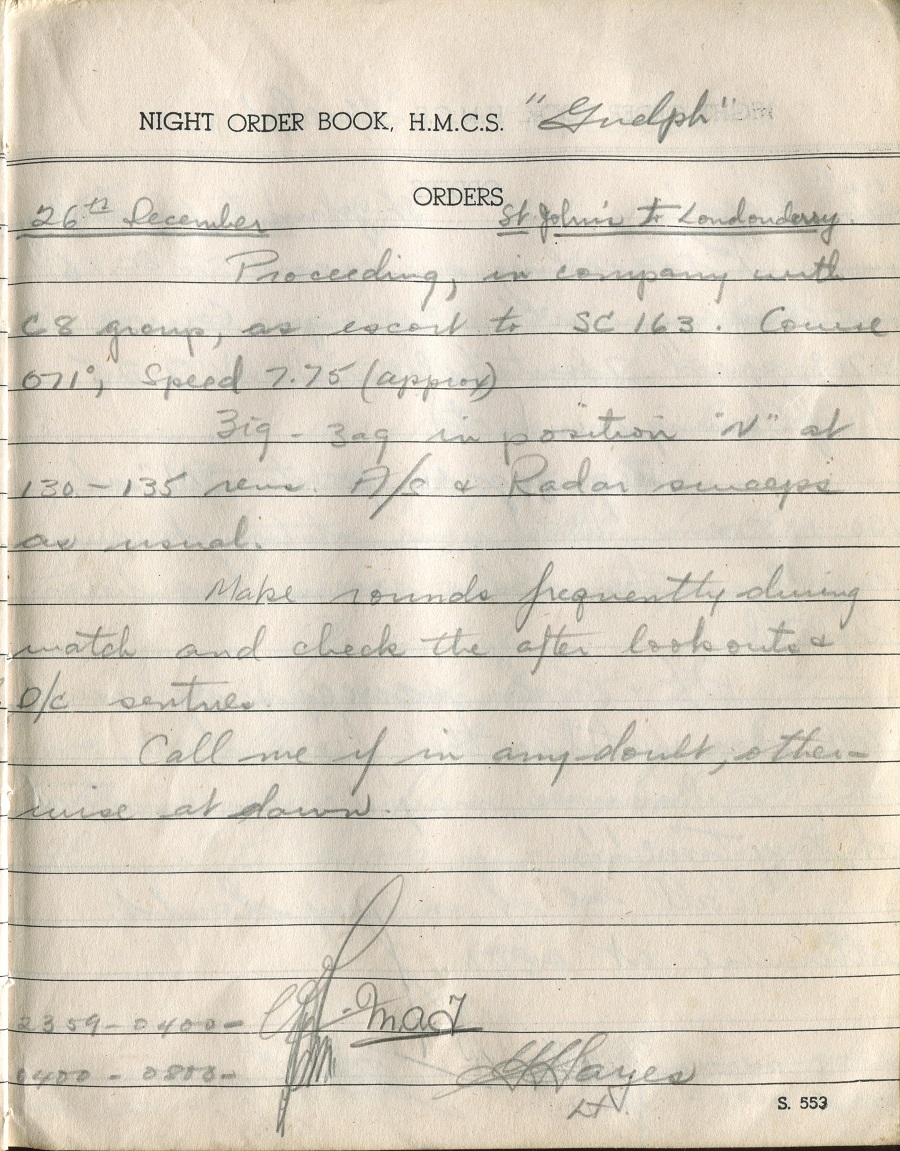 NIGHT ORDER BOOK, H.M.C.S. "Guelph"
ORDERS
26th December St John's to Londonderry.
Proceeding, in company with
C8 group, as escort to SC 163. Course
071°, Speed 7.75 (approx)
Zig-zag in position "N" at
130-135 revs. A/S & Radar sweeps
as usual.
Make rounds frequently during
watch and check the after lookouts &
D/C sentries.
Call me if in any doubt, other-
wise at dawn.
2359-0400-
0400-0800- Hayes
Lt.
S. 553